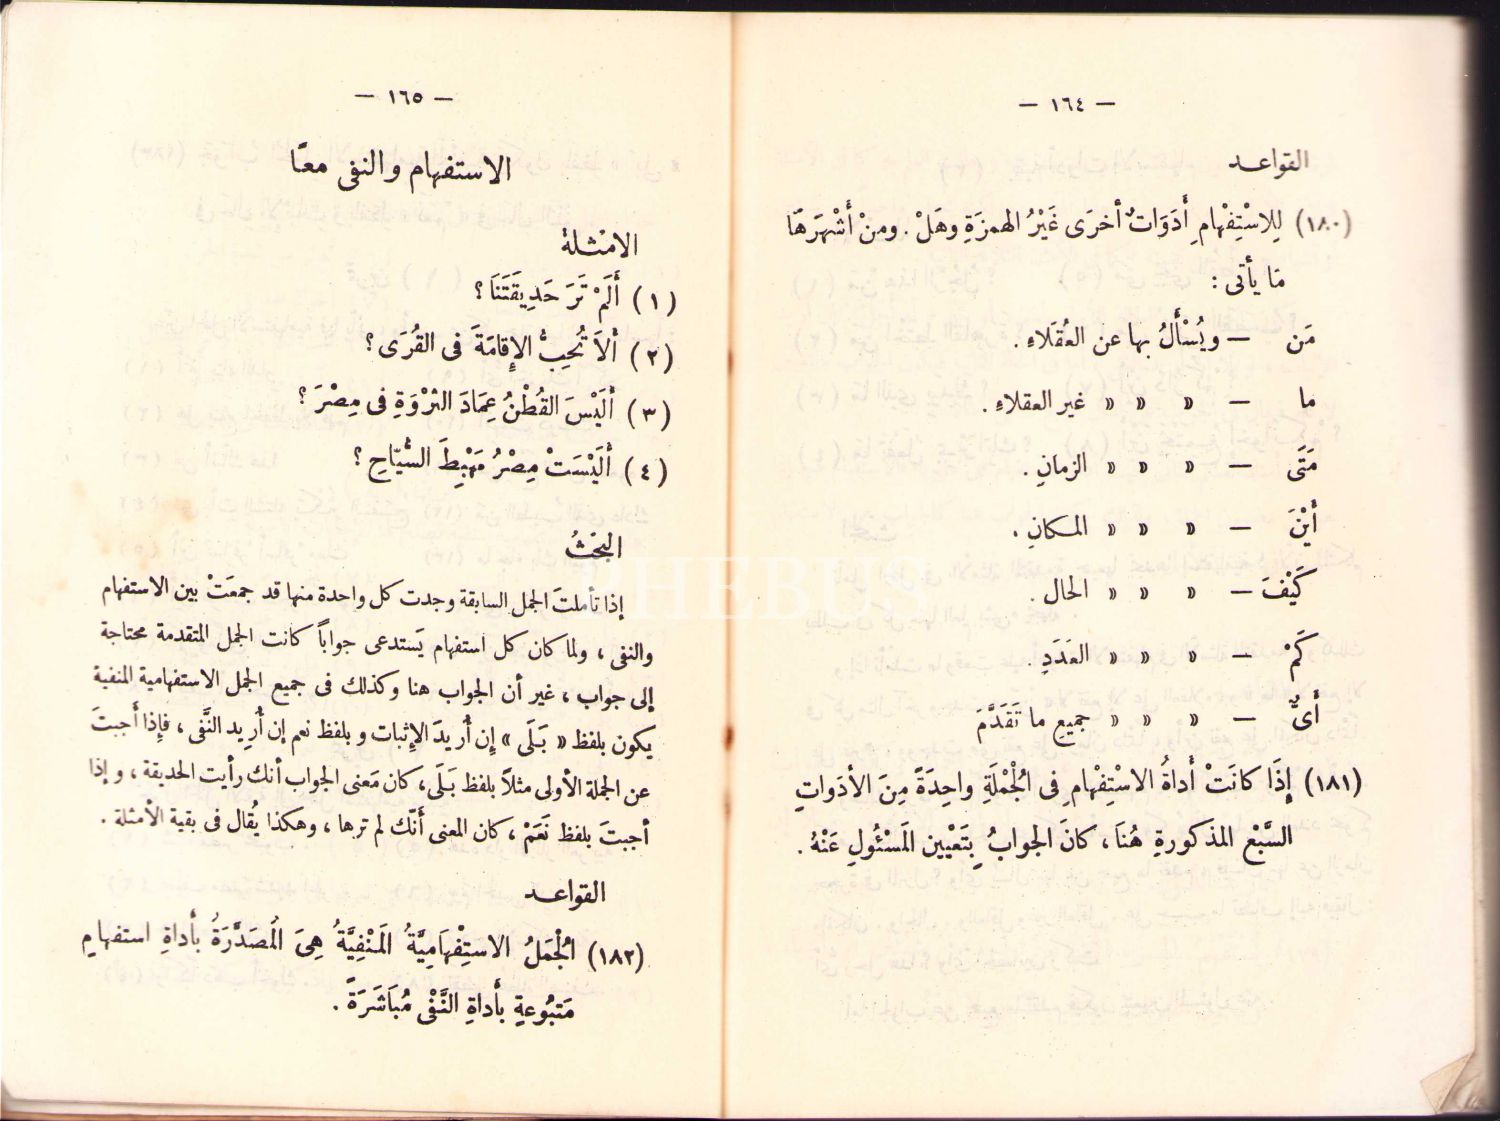 — ١٦٤ —
القواعد
(١٨٠) لِلِاسْتِفْهَامِ أَدَوَاتٌ أخرَى غَيْرُ الهمزَةِ وهَلْ. ومنْ أَشْهَرَهَا
مَا يأتى :
مَن — ويُسْأَلُ بها عن العُقَلاءِ .
ما — « « « غير العقلاءِ .
مَتَى — « « « الزمانِ .
أَيْنَ — « « « المكانِ .
كَيْفَ — « « « الحال .
كَمْ — « « « العَدَدِ .
أَىٌّ — « « « جميعِ ما تَقَدَّمَ
(١٨١) إِذَا كانَتْ أداةُ الاسْتِفْهامِ فى الْجُمْلَةِ واحِدَةً مِنَ الأدَواتِ
السَّبْعِ المذكورةِ هُنَا، كانَ الجوابُ بِتَعْيينِ المَسْئُولِ عَنْهُ .
— ١٦٥ —
الاستفهام والنفى معًا
الامْثلة
(١) أَلَمْ تَرَ حَدِيقَتَنَا ؟
(٢) أَلاَ تُحِبُّ الإِقامَةَ فى القُرَى ؟
(٣) أَلَيْسَ القُطْنُ عِمَادَ الثرْوَةِ فى مِصْرَ ؟
(٤) أَلَيْسَتْ مِصْرُ مَهْبِطَ السُّيّاحِ ؟
البَحْثُ
إذا تأملتَ الجمل السابقة وجدت كل واحدة منها قد جمعَتْ بين الاستفهام
والنفى ، ولما كان كل استفهام يَستدعى جواباً كانت الجمل المتقدمة محتاجة
إلى جواب ، غير أن الجواب هنا وكذلك فى جميع الجمل الاستفهامية المنفية
يكون بلفظ « بَلَى » إِن أُريدَ الإِثبات و بلفظ نعم إن أُرِيد النَّفى ، فإِذا أَجبتَ
عن الجملة الأولى مثلاً بلفظ بَلَى، كان مَعنى الجواب أنك رأيت الحديقة ، و إذا
أجبتَ بلفظ نَعَمْ ، كان المعنى أَنّك لم ترها ، وهكذا يُقال فى بقية الأمثلة .
القواعد
(١٨٢) الْجُمَلُ الاسْتِفْهَامِيَّةُ المَنْفِيَّةُ هِىَ المُصَدَّرَةُ بأَداةِ استفهامٍ
مَتبُوعةٍ بأَداةِ النَّفْى مُبَاشَرَةً .
PHEBUS